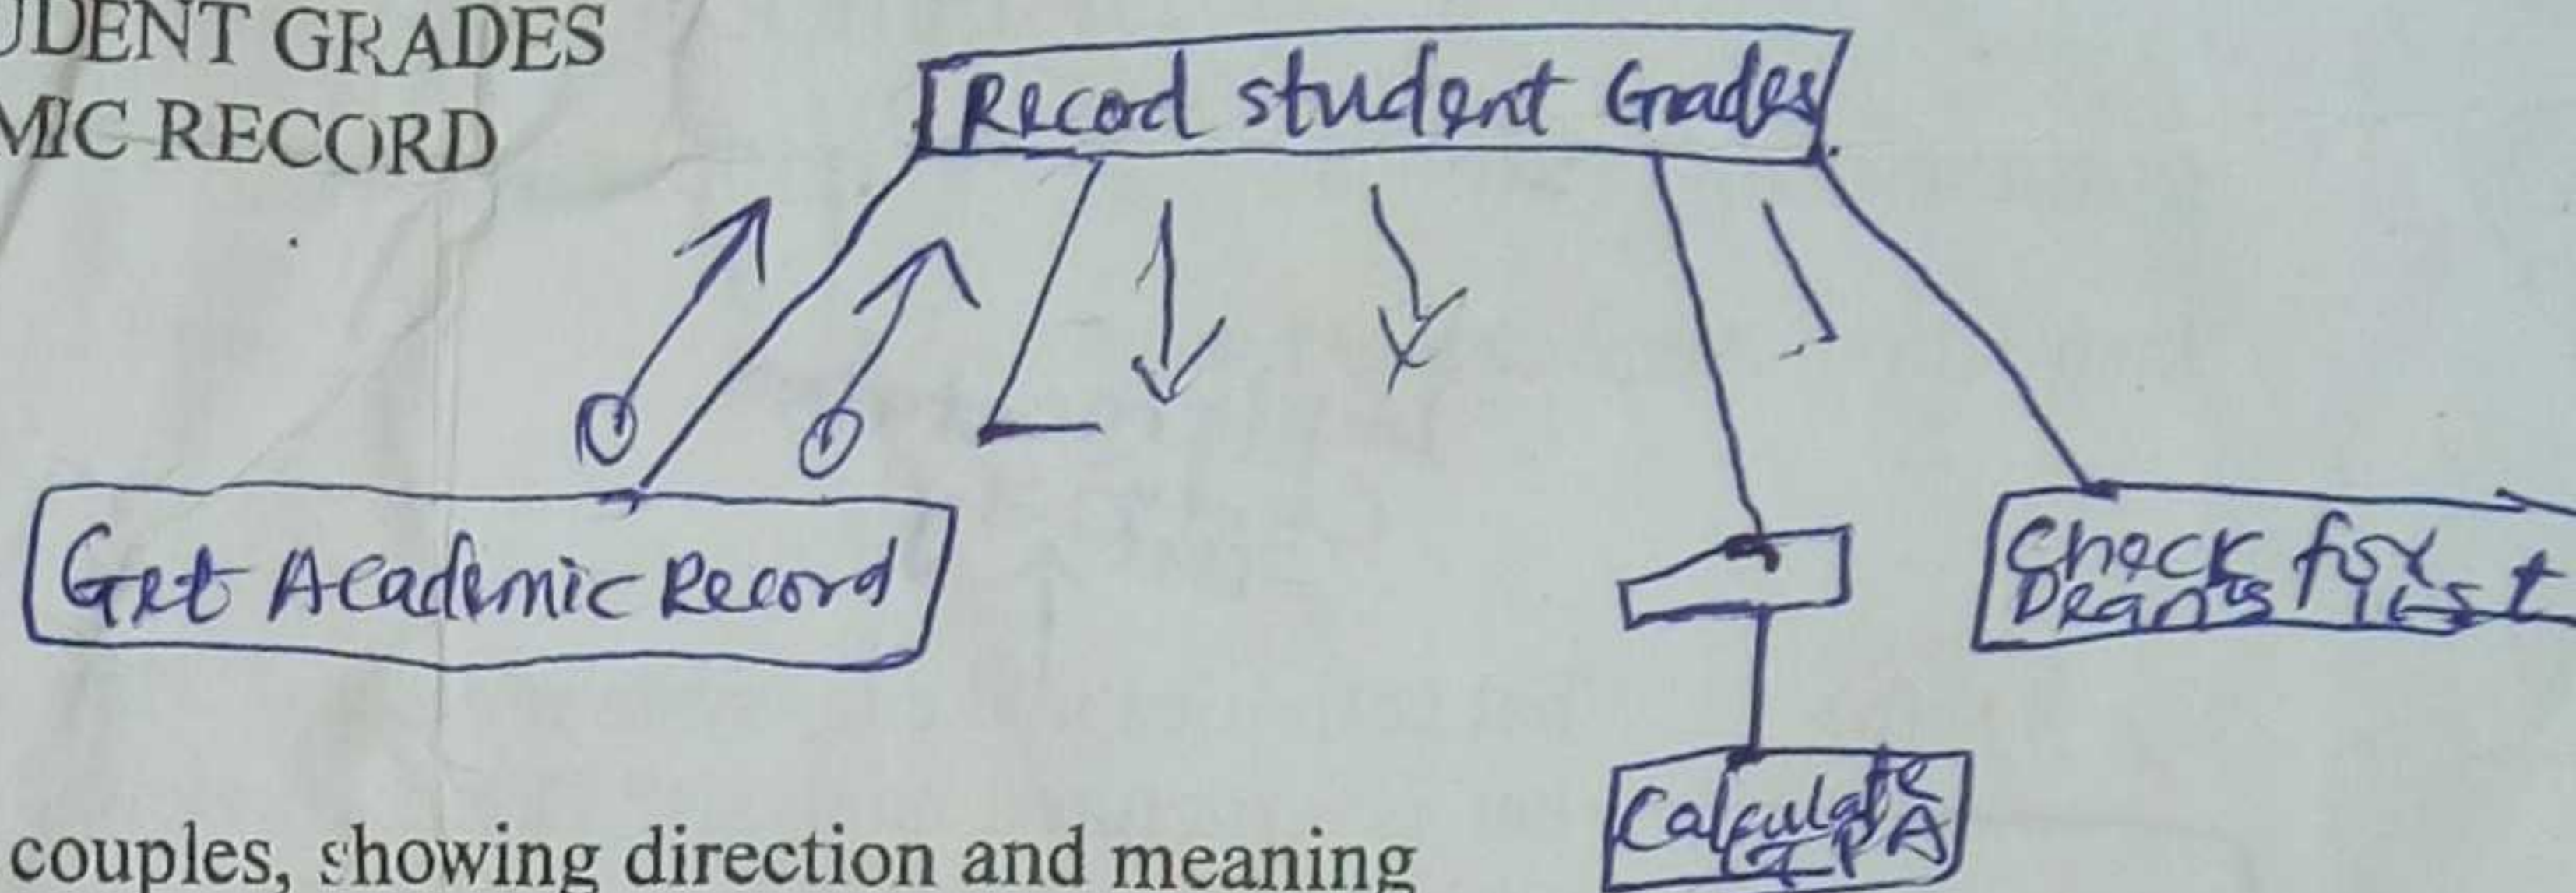 UDENT GRADES
MIC RECORD
Record student Grades
Get Academic Record
Check for
Dean's List
Calculate
couples, showing direction and meaning